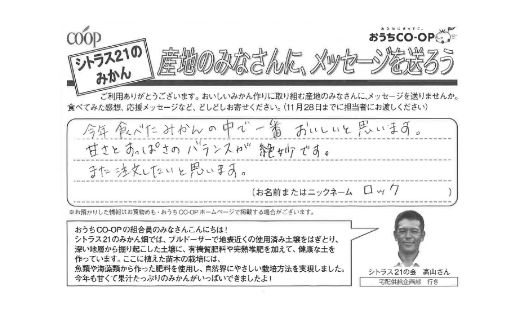 CO·OP
おうちCO-OP
シトラス21の
みかん
産地のみなさんに、メッセージを送ろう
ご利用ありがとうございます。おいしいみかん作りに取り組む産地のみなさんに、メッセージを送りませんか。
食べてみた感想、応援メッセージなど、どしどしお寄せください。(11月28日までに担当者にお渡しください)
今年食べたみかんの中で一番おいしいと思います。
甘さとすっぱさのバランスが絶妙です。
また注文したいと思います。
(お名前またはニックネーム ロック )
※お預かりした情報はお買物めも・おうちCO-OPホームページで掲載する場合がございます。
おうちCO-OPの組合員のみなさんこんにちは!
シトラス21のみかん畑では、ブルドーザーで地表近くの使用済み土壌をはぎとり、
深い地層から掘り起こした土壌に、有機質肥料や完熟堆肥を加えて、健康な土を
作っています。ここに植えた苗木の栽培には、
魚類や海藻類から作った肥料を使用し、自然界にやさしい栽培方法を実現しました。
今年も甘くて果汁たっぷりのみかんがいっぱいできましたよ!
シトラス21の会 高山さん
宅配供給企画部 行き